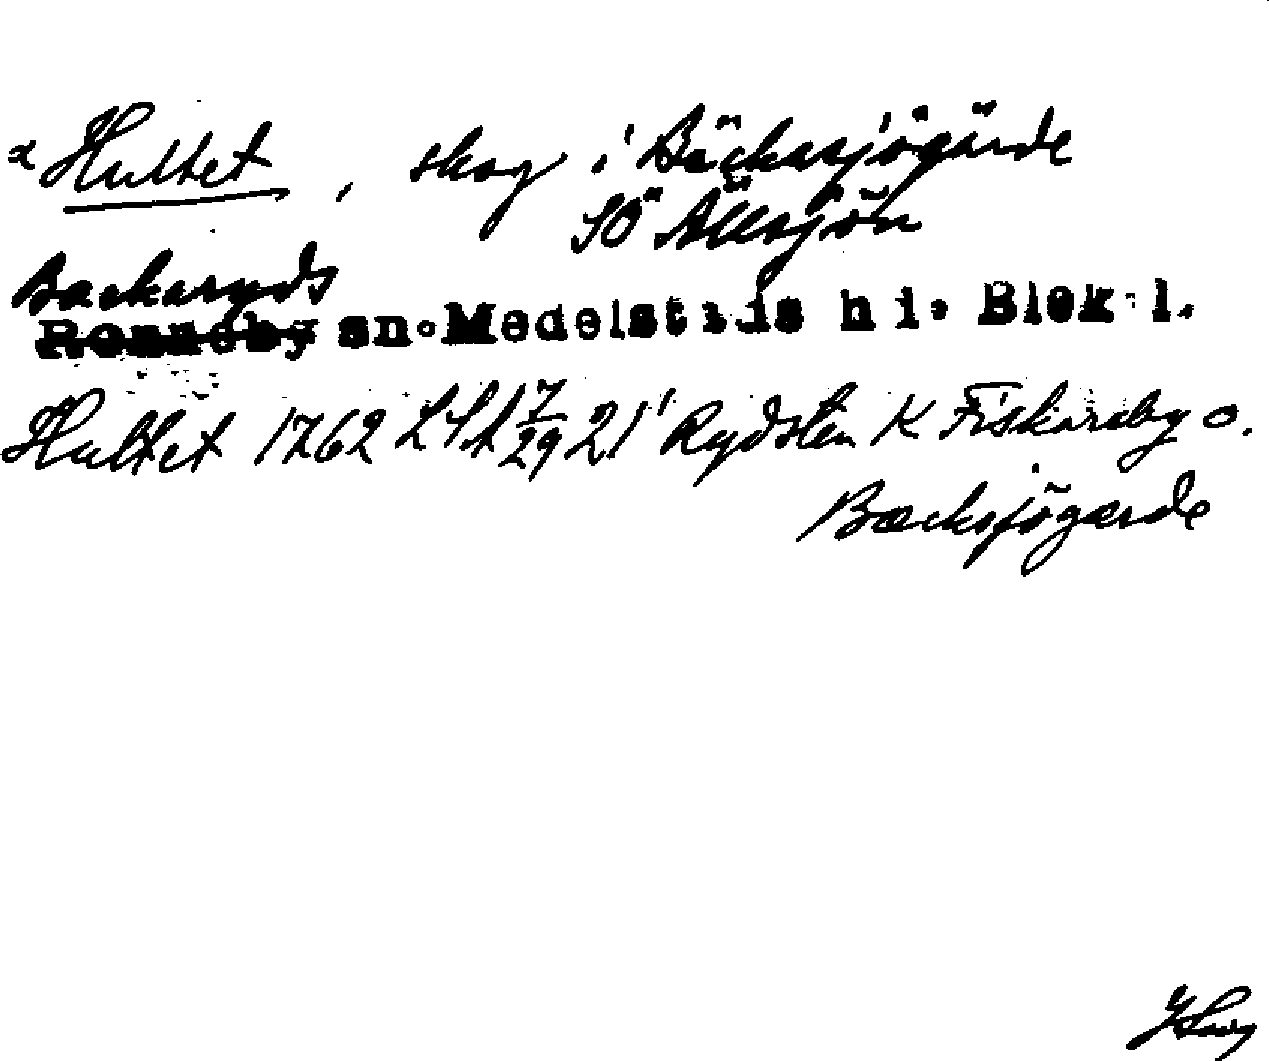 x Hultet, skog i Bäcksjögärde
SÖ Ällsjön
Backaryds
Ronneby sn. Medelstads h d. Blek. l.
Hultet 1762 LSA 7/29 21 i Rydsten K Fiskaraby o.
Backsjögærde